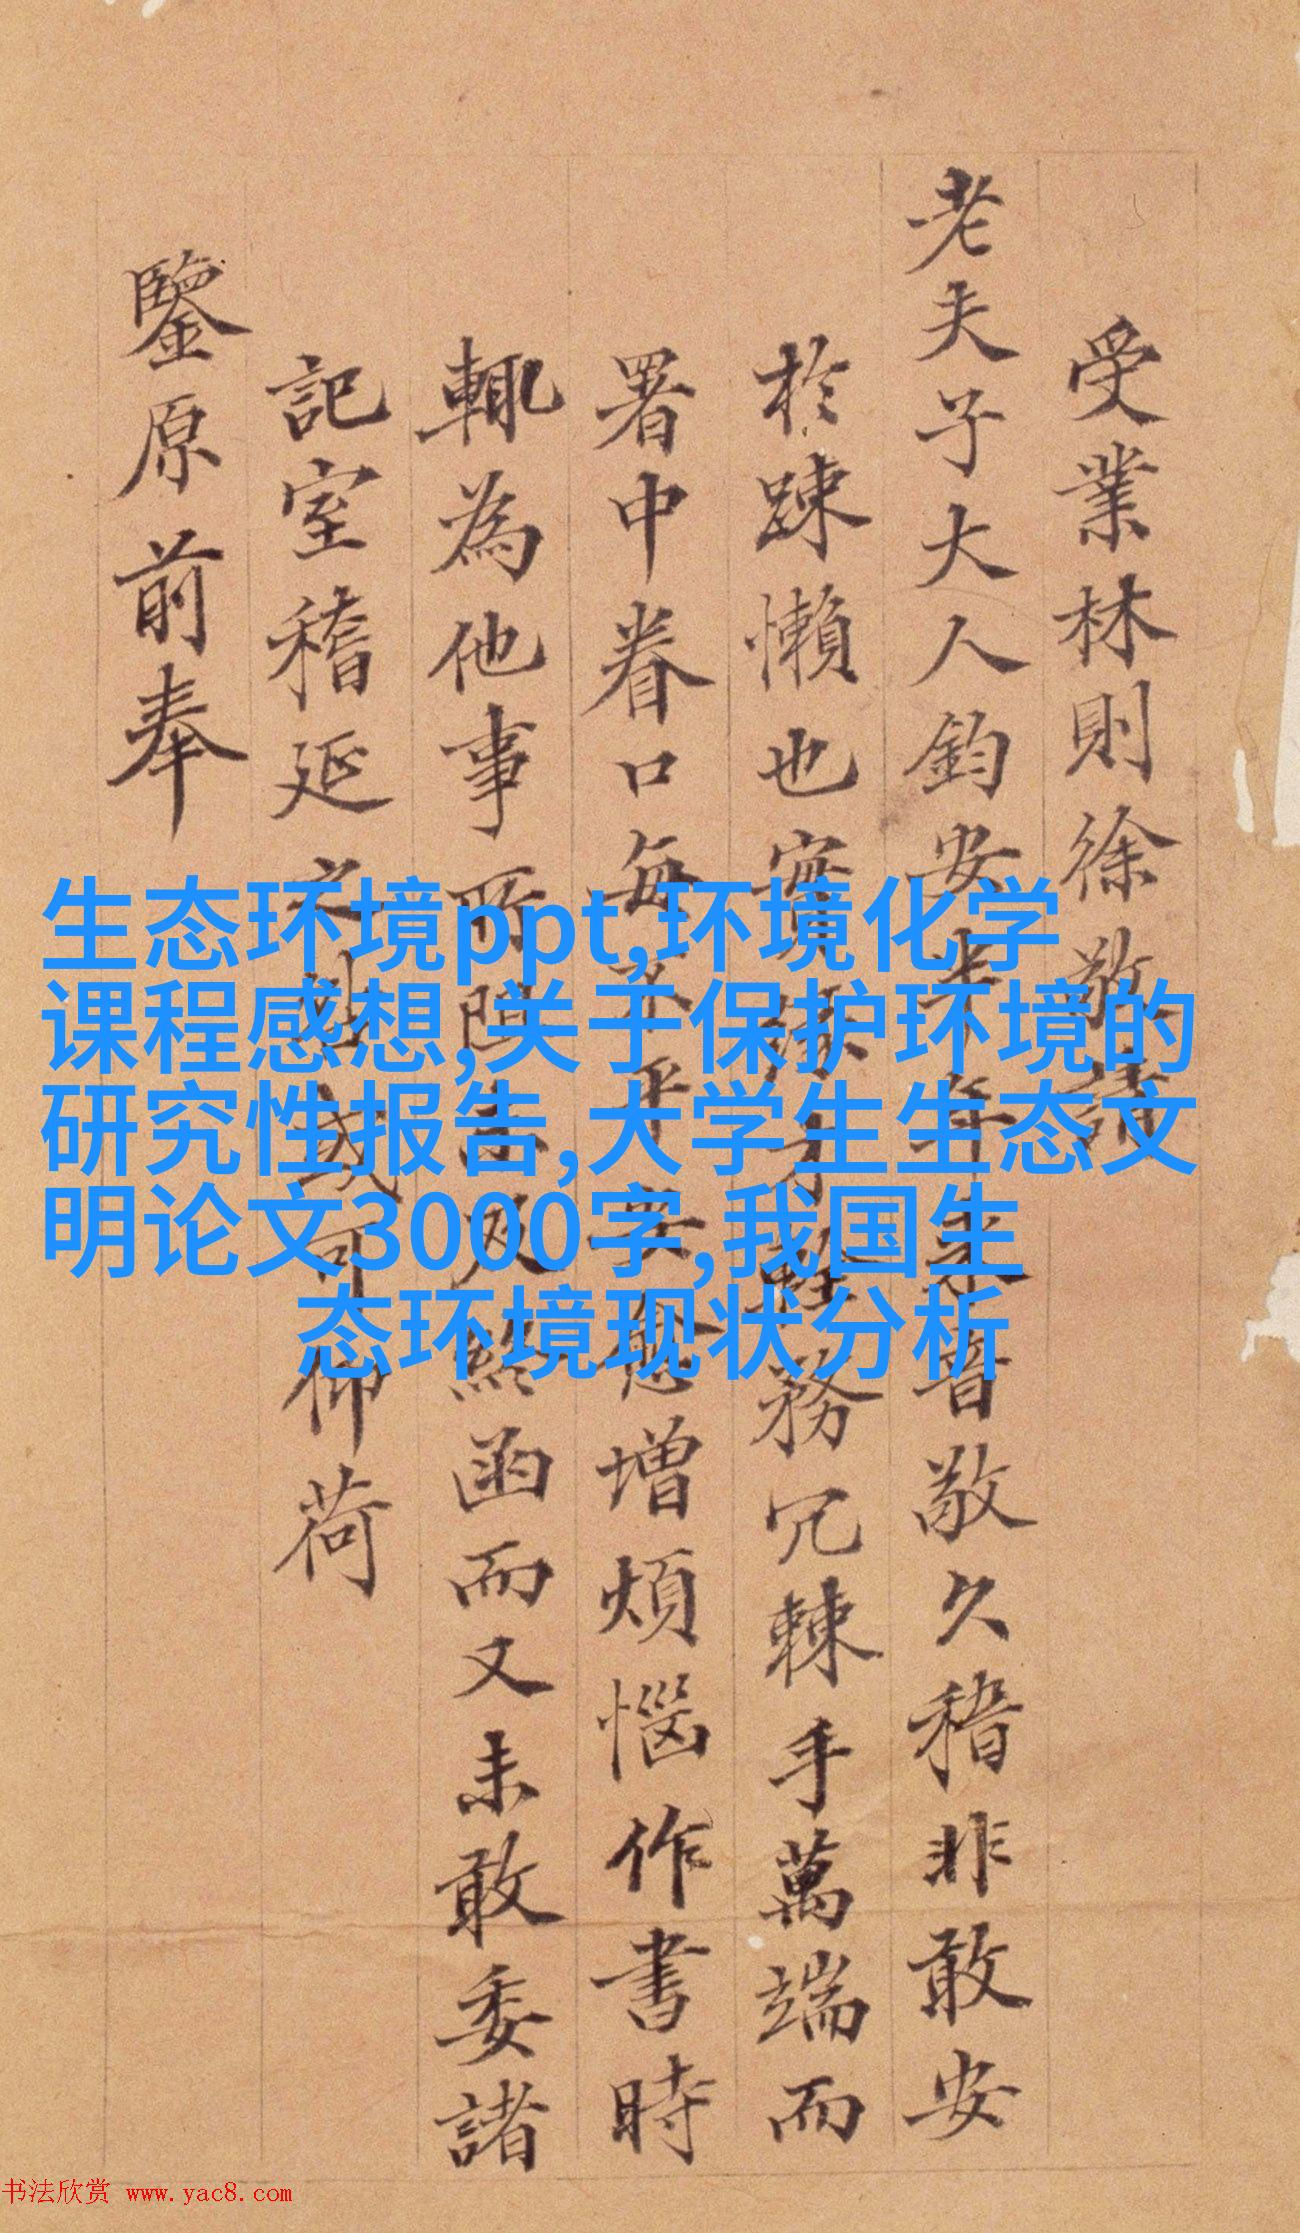 受業林則徐敬請
老夫子大人鈞安半年来音敬久稽非敢安
於踈懶也實緣才輇務冗棘手萬端而
署中眷口每不平安愈增煩惱作書時
輙為他事所阻未及終函而又未敢委諸
記室稽延之或可仰荷
鑒原前奉
生态环境ppt,环境化学
课程感想,关于保护环境的
研究性报告,大学生生态文
明论文3000字,我国生
态环境现状分析
书法欣赏 www.yac8.com